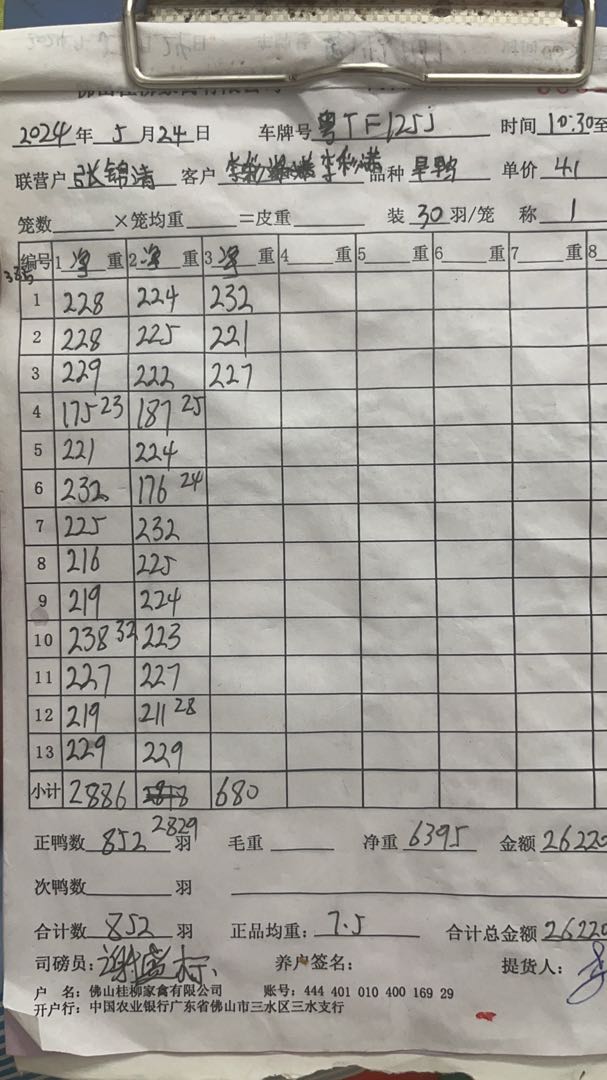 2024年 5月24日 车牌号 粤TF125J 时间 10:30至
联营户 张锦清 客户 李彩满 品种 旱鸭 单价 4.1
笼数 ×笼均重 =皮重 装 30 羽/笼 称 1
编号 1 净 重 2 净 重 3 净 重 4 重 5 重 6 重 7 重 8
1 228 224 232
2 228 225 221
3 229 222 227
4 175 23 187 25
5 221 224
6 232 176 24
7 225 232
8 216 225
9 219 224
10 238 32 223
11 227 227
12 219 211 28
13 229 229
小计 2886 680
2829
正鸭数 852 羽 毛重 净重 6395 金额 26220
次鸭数 羽
合计数 852 羽 正品均重: 7.5 合计总金额 26220
司磅员: 养户签名: 提货人:
户 名: 佛山桂柳家禽有限公司 账号: 444 401 010 400 169 29
开户行: 中国农业银行广东省佛山市三水区三水支行